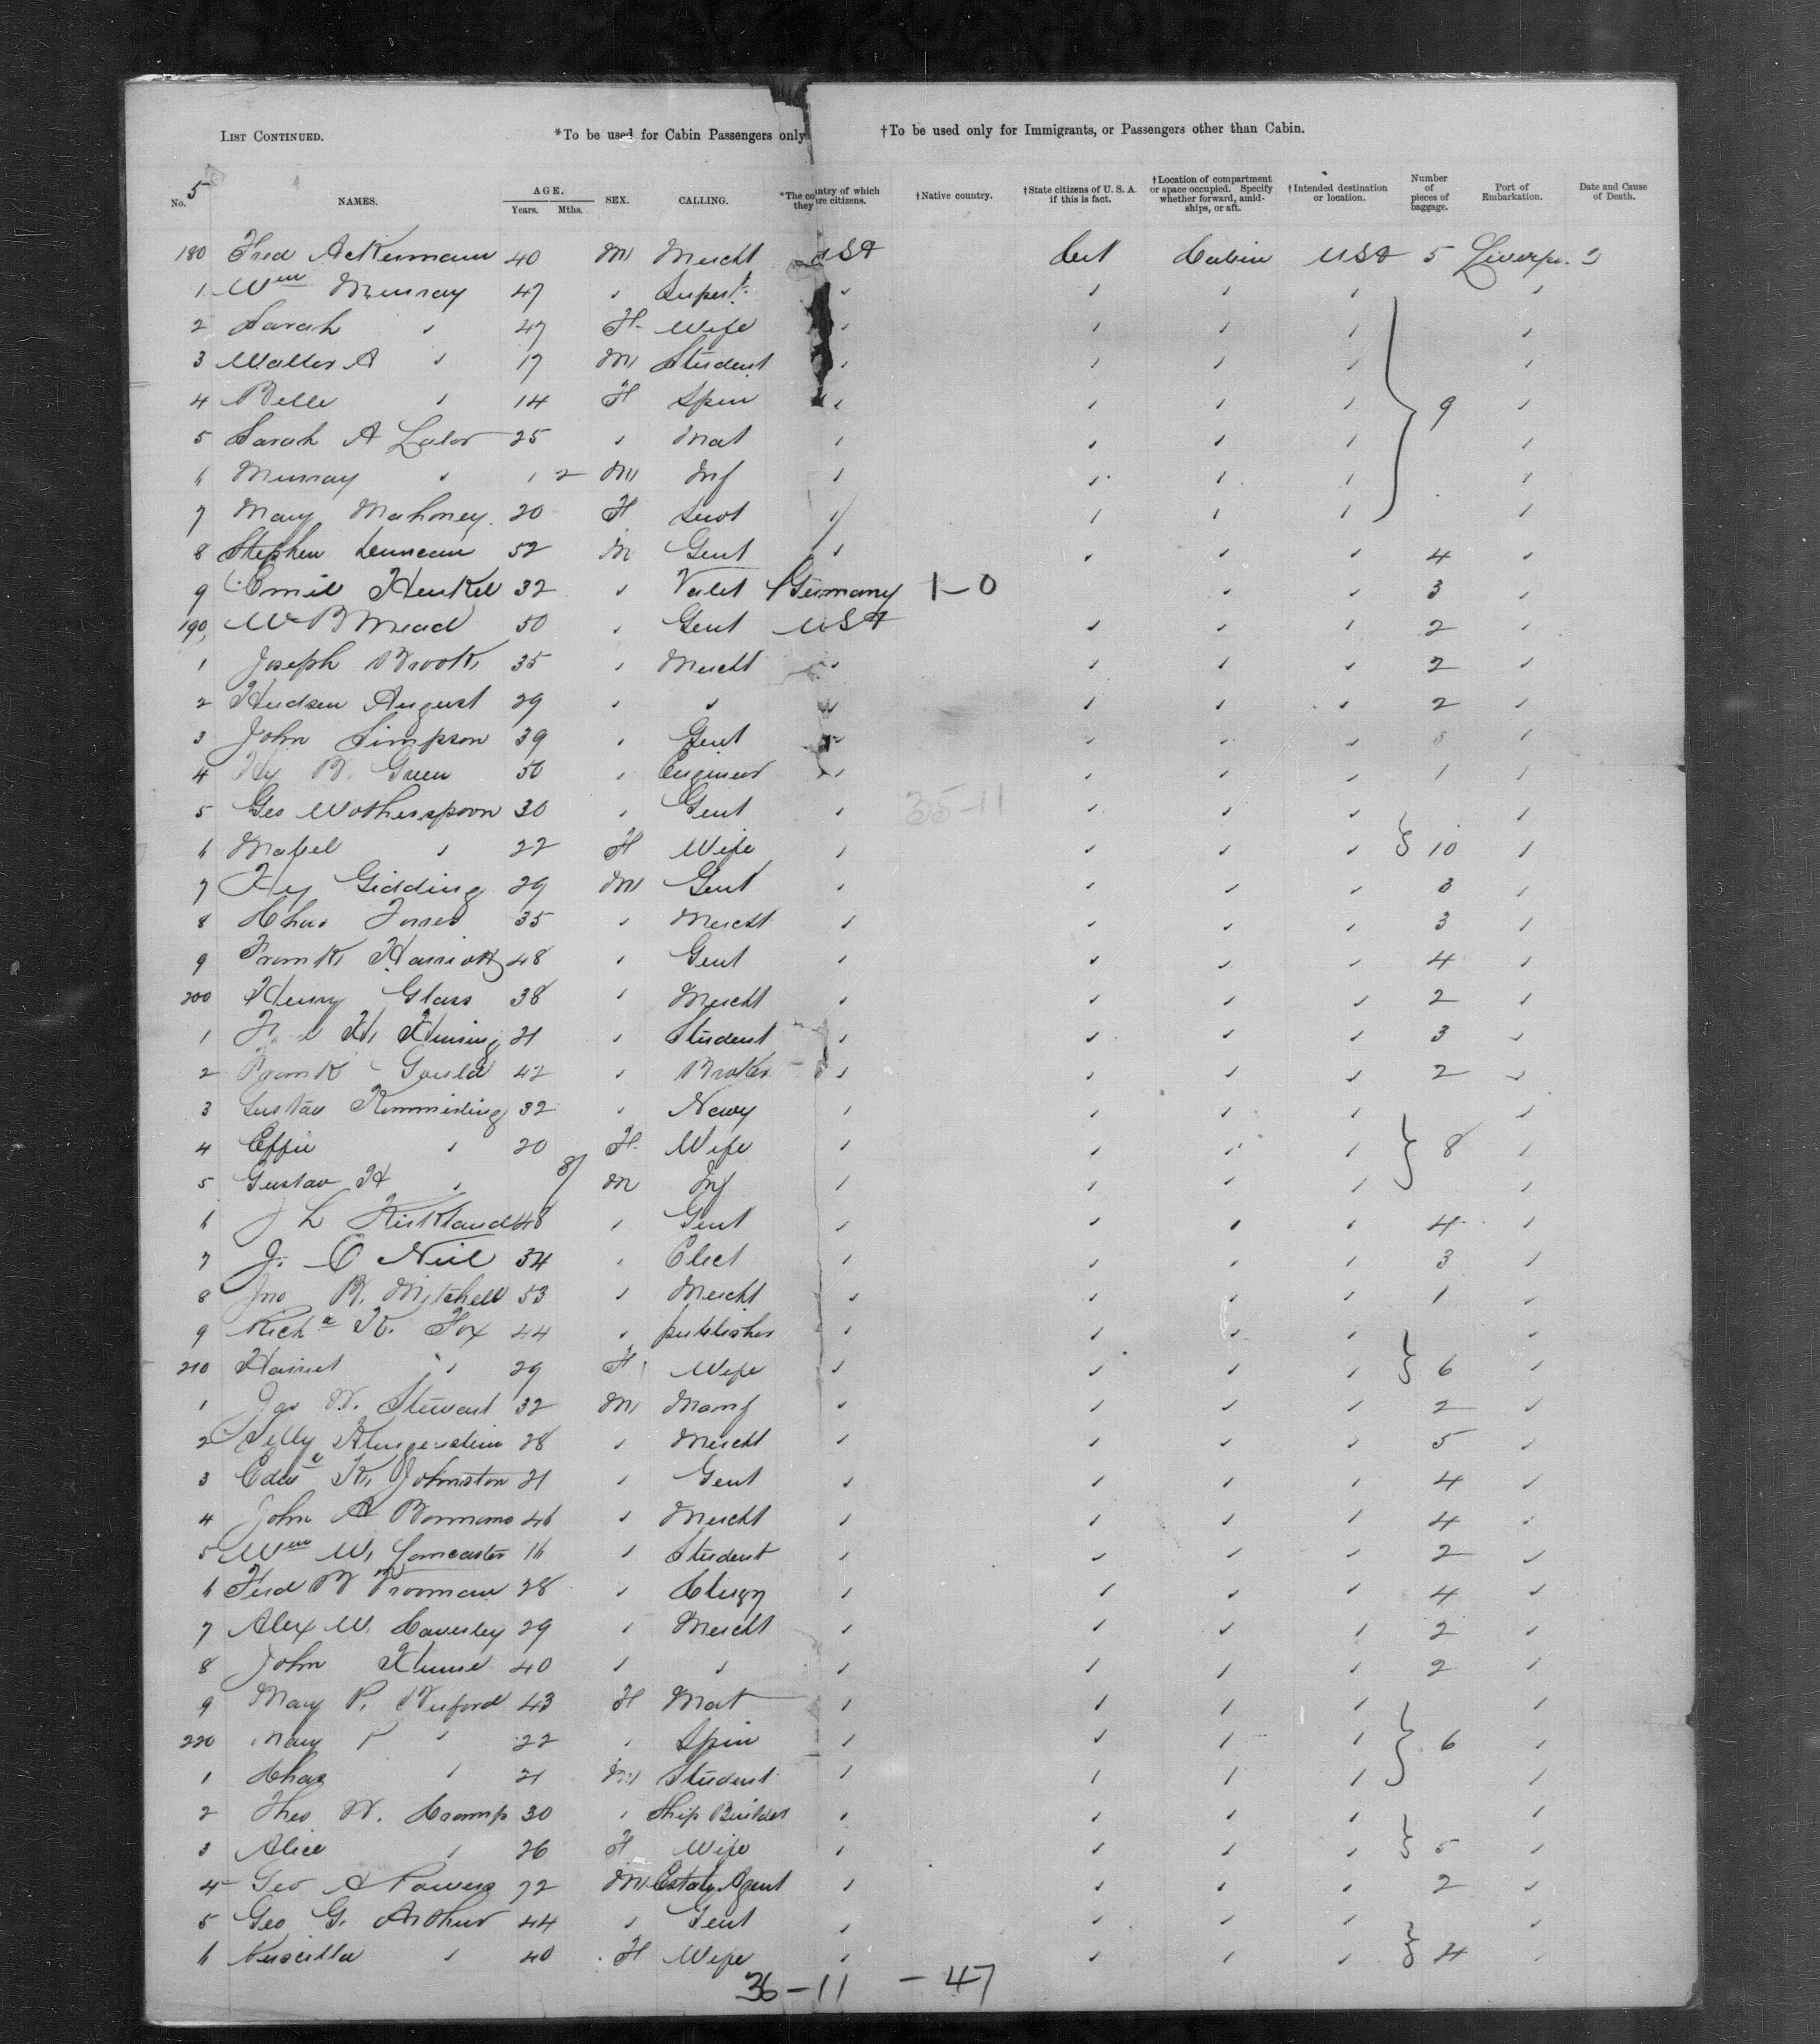 LIST CONTINUED. *To be used for Cabin Passengers only †To be used only for Immigrants, or Passengers other than Cabin.
5
No. NAMES. AGE. Years. Mths. SEX. CALLING. *The country of which they are citizens. †Native country. †State citizens of U. S. A. if this is fact. †Location of compartment or space occupied. Specify whether forward, amidships, or aft. †Intended destination or location. Number of pieces of baggage. Port of Embarkation. Date and Cause of Death.
180 Fred Ackermann 40 M Mercht USA Cit Cabin USA 5
1 Wm Murray 47 " Supert " " " " "
2 Sarah " 47 F Wife " " " " "
3 Walter A " 17 M Student " " " " "
4 Belle " 14 F Spin " " " " 9 "
5 Sarah A Lalor 25 " Mat " " " " "
6 Murray " 1 2 M Inf " " " " "
7 Mary Mahoney 20 F Servt " " " " "
8 Stephen 52 M Gent " " " " 4 "
9 Emil Henkel 32 " Valet Germany 1-0 " " 3 "
190 W B Mead 50 " Gent USA " " " 2 "
1 Joseph Brook 35 " Mercht " " " " 2 "
2 Hudson August 29 " " " " " " 2 "
3 John Simpson 39 " Gent " " " " 3 "
4 Hy B. Green 50 " Engineer " " " " 1 "
5 Geo Wotherspoon 30 " Gent " 35-11 " " " "
6 Mabel " 22 F Wife " " " " 10 "
7 Hy Gidding 29 M Gent " " " " 3 "
8 Chas 35 " Mercht " " " " 3 "
9 Frank Harriott 48 " Gent " " " " 4 "
200 Henry Glass 38 " Mercht " " " " 2 "
1 H. 21 " Student " " " " 3 "
2 Frank Gould 42 " Broker " " " " 2 "
3 Gustav 32 " Navy " " " " "
4 Effie " 20 F Wife " " " " 8 "
5 Gustav H " 8/ M Inf " " " " "
6 J L Kirkland 48 " Gent " " " " 4 "
7 J. O Neil 34 " Elect " " " " 3 "
8 Jno B. Mitchell 53 " Mercht " " " " 1 "
9 Richd K. Fox 44 " publisher " " " " "
210 Harriet " 29 F Wife " " " " 6 "
1 Jas W. Stewart 32 M Manf " " " " 2 "
2 28 " Mercht " " " " 5 "
3 Edwd K. Johnston 21 " Gent " " " " 4 "
4 John A 46 " Mercht " " " " 4 "
5 Wm W. Lancaster 16 " Student " " " " 2 "
6 Fred B Vrooman 28 " Clergy " " " " 4 "
7 Alex W. Caverley 29 " Mercht " " " " 2 "
8 John 40 " " " " " " 2 "
9 Mary P. Buford 43 F Mat " " " " "
220 Mary " 22 " Spin " " " " 6 "
1 Chas " 21 M Student " " " " "
2 Theo W. Cramp 30 " Ship Builder " " " " "
3 Alice " 26 F Wife " " " " 5 "
4 Geo A Powers 72 M Estate Agent " " " " 2 "
5 Geo G. Arthur 44 " Gent " " " " "
6 Priscilla " 40 F Wife " " " " 4 "
36-11 - 47